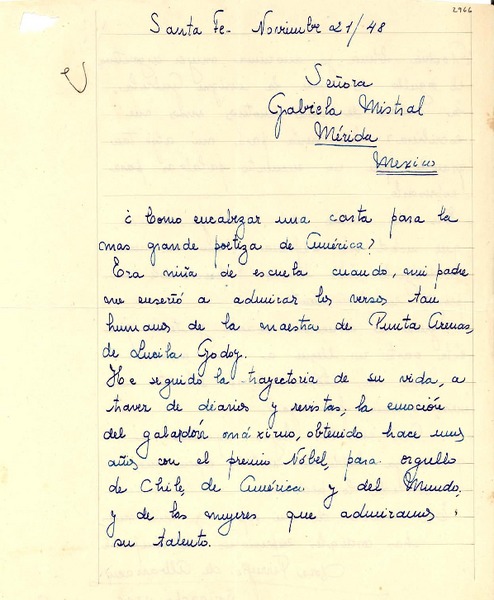 2966
Santa Fe - Noviembre 21/48
Señora
Gabriela Mistral
Mérida
Mexico
¿ Como encabezar una carta para la
mas grande poetiza de América?
Era niña de escuela cuando, mi padre
me enseñó a admirar los versos tan
humanos de la maestra de Punta Arenas,
de Lucila Godoy.
He seguido la trayectoria de su vida, a
traver de diarios y revistas; la emoción
del galardón máximo, obtenido hace unos
años con el premio Nóbel, para orgullo
de Chile, de América y del Mundo,
y de las mujeres que admiramos
su talento.